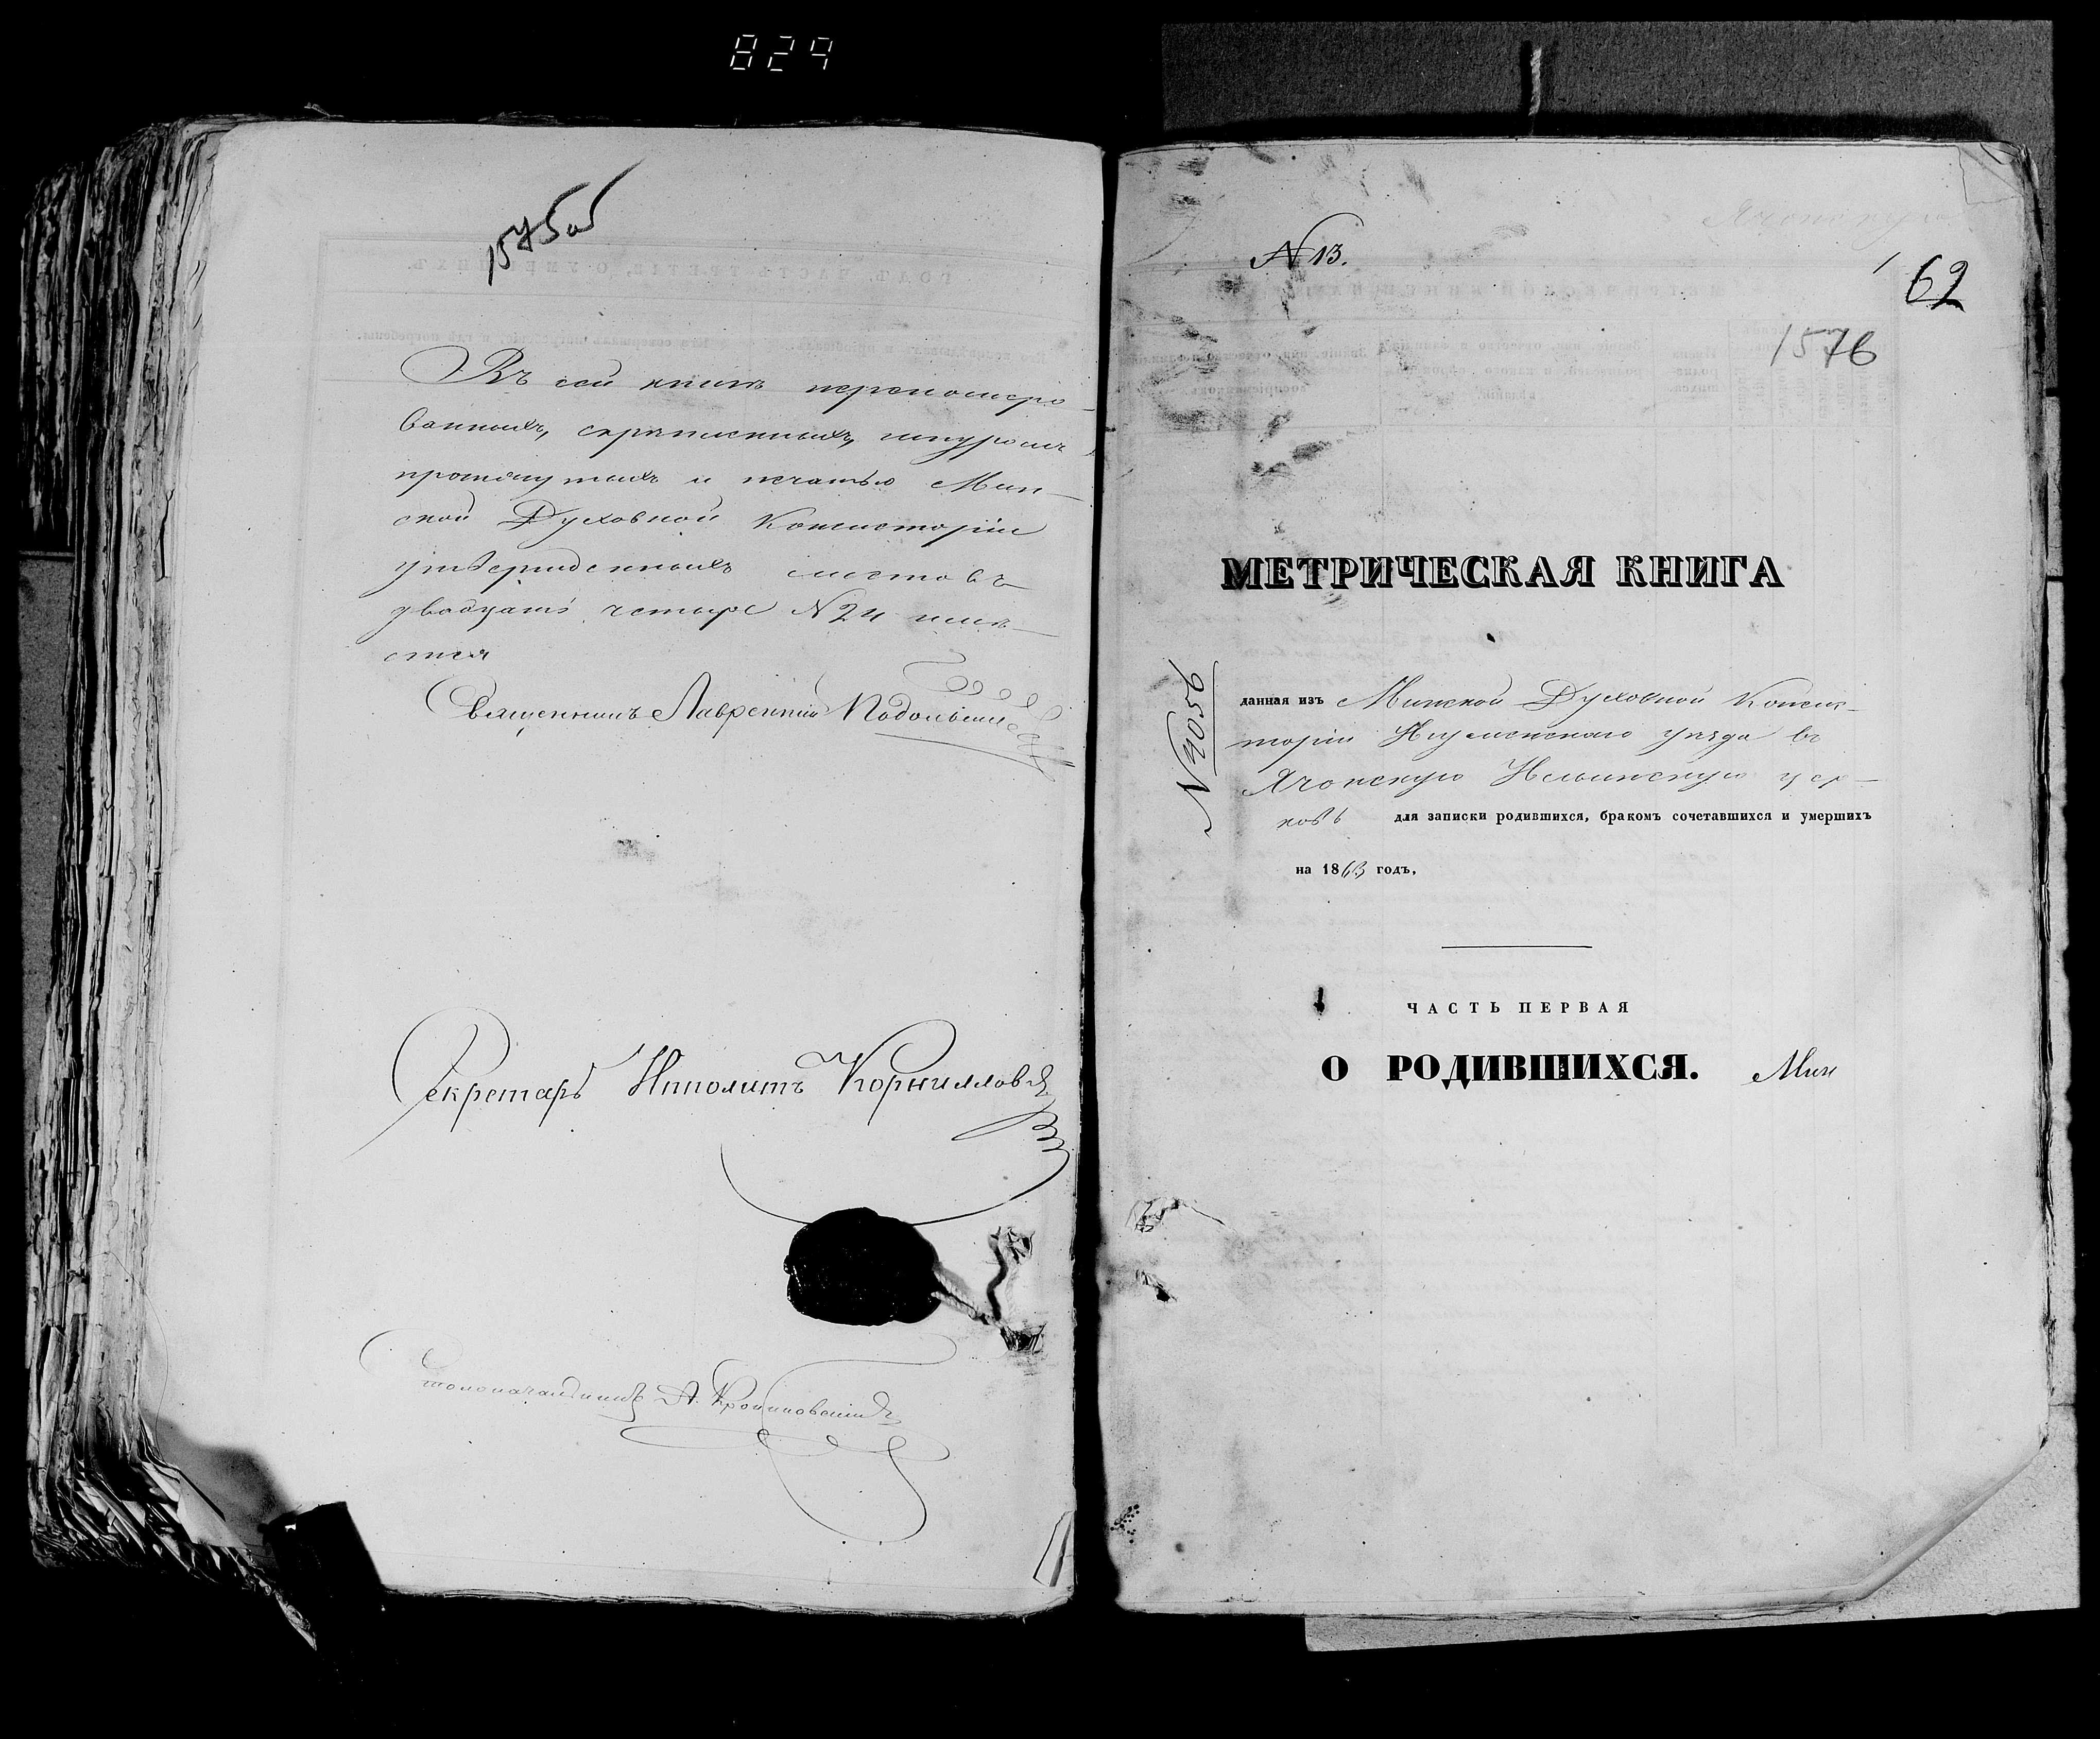 829
1575об
Въ сей книгѣ перенумеро-
ванныхъ, скрѣпленныхъ, шнуромъ
протянутыхъ и печатью Мин-
ской Духовной Консисторіи
утвержденныхъ листовъ
двадцать четыре №24 имѣ-
ется
Священникъ Лаврентій Подольскій
Секретарь Ипполитъ Корниллов
Столоначальникъ А.
№ 13.
62
1576
МЕТРИЧЕСКАЯ КНИГА
№ 4056
данная изъ Минской Духовной Консис-
торіи Игуменскаго уѣзда въ
Ячонскую Ильинскую цер-
ковь для записки родившихся, бракомъ сочетавшихся и умершихъ
на 1863 годъ,
ЧАСТЬ ПЕРВАЯ
О РОДИВШИХСЯ. Мин